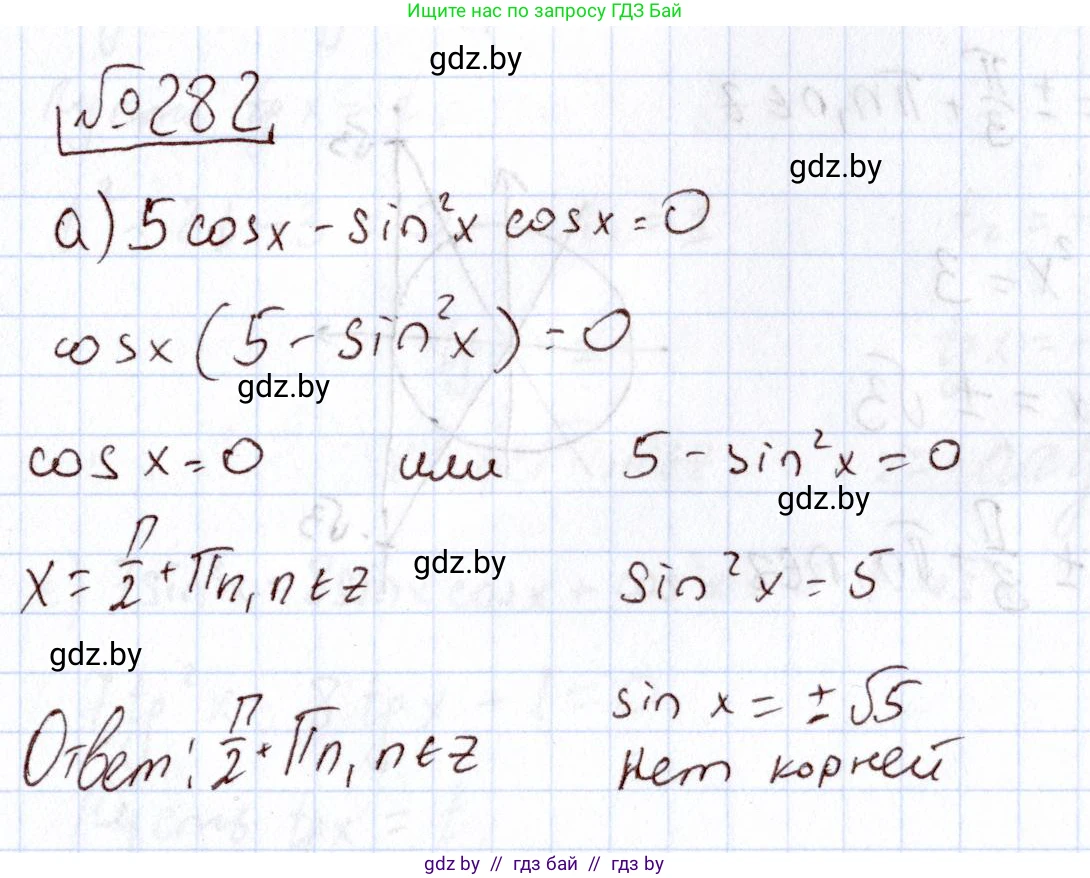 Ищите нас по запросу ГДЗ Бай
gdz.by
№282
gdz.by
а) 5cosx - sin²x cosx = 0
cosx (5 - sin²x) = 0
gdz.by
cos x = 0 или 5 - sin²x = 0
gdz.by
x = π/2 + πn, n ∈ z gdz.by sin²x = 5
gdz.by
sin x = ± √5
Ответ: π/2 + πn, n ∈ z Нет корней
gdz by // гдз бай // гдз by